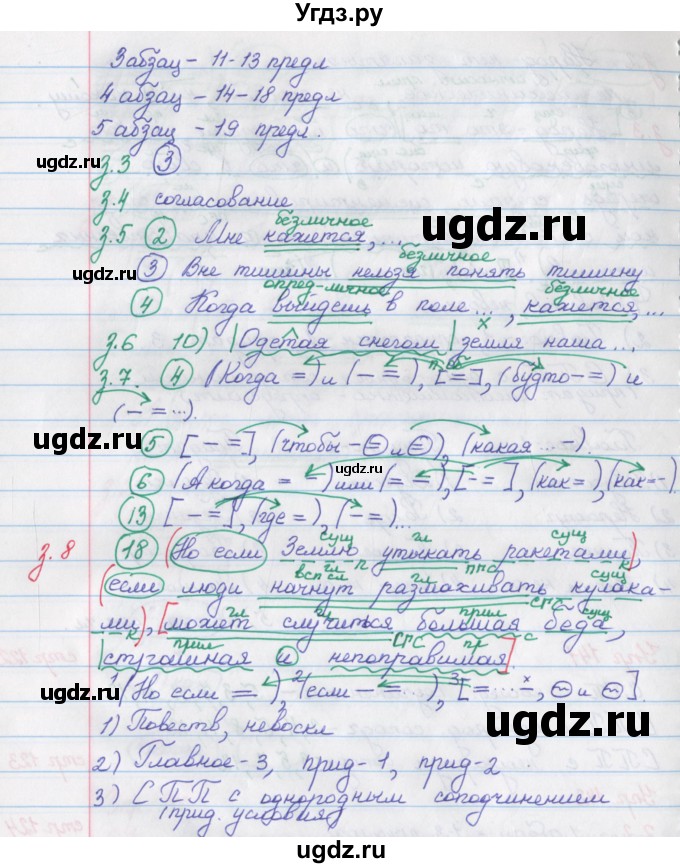 Угдз.ру
3 абзац - 11-13 предл
4 абзац - 14-18 предл
5 абзац - 19 предл.
ugdz.ru ugdz.ru
з.3 ③
з.4 согласование
безличное
з.5 ② Мне кажется, ...
ugdz.ru
безличное
③ Вне тишины нельзя понять тишину
ugdz.ru
опред-личное безличное
④ Когда выйдешь в поле ... , кажется, ...
х
з.6 10) |Одетая снегом| земля наша ...
ugdz.ru
з.7. ④ (Когда =) и (- =), [=], (будто - =) и
(- = ...).
ugdz.ru
⑤ [- =], (чтобы - = и =), (какая ... -).
ugdz.ru
⑥ (А когда = -) или (= -), [- =], (как =), (как = -).
ugdz.ru
⑬ [- =], (где =), (- =)...
сущ гл сущ
з.8 ⑱ (Но если Землю утыкать ракетами),
всп гл п гл ПГС сущ к
(если люди начнут размахивать кулака-
ugdz.ru
гл гл СГС прил сущ
ми), [может случиться большая беда,
к прил СГС пр с
|страшная и непоправимая].
ugdz.ru
¹(Но если =), ²(если - = ...), ³[= ... х -, ~ и ~].
ugdz.ru
1) Повеств, невоскл
ugdz.ru
2) Главное - 3, прид - 1, прид - 2
3) СПП с однородным соподчинением
(прид. условия)
ugdz.ru